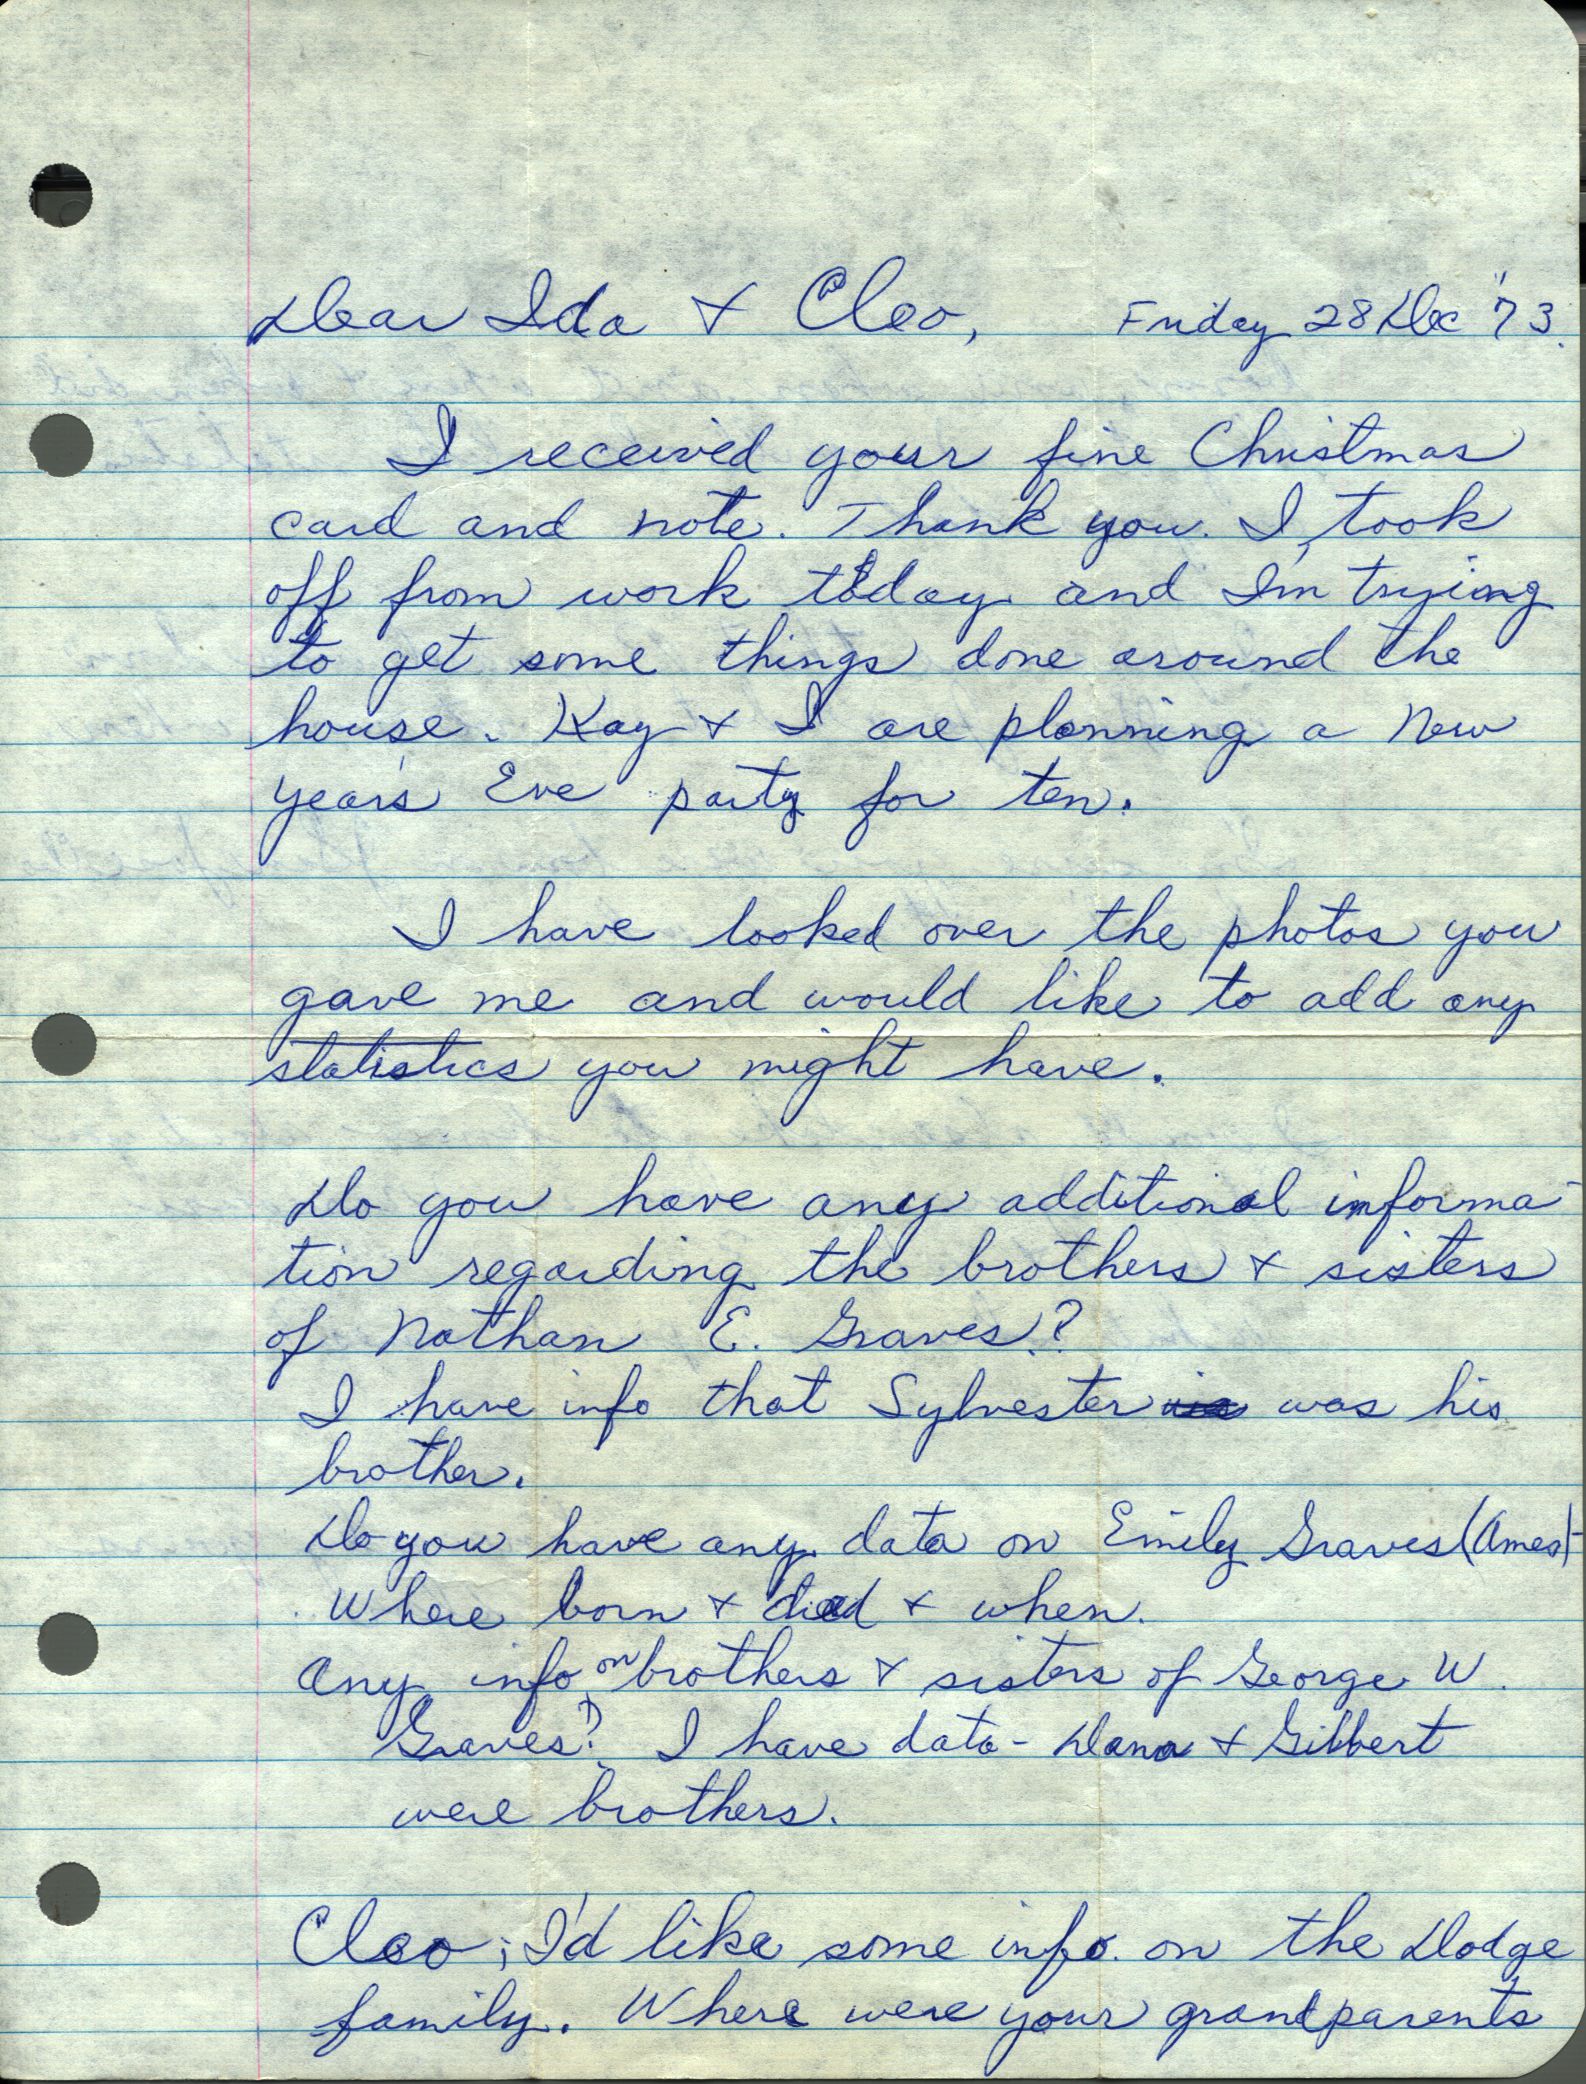 Dear Ida & Cleo, Friday 28 Dec "73.
I received your fine Christmas
card and note. Thank you. I took
off from work today and I'm trying
to get some things done around the
house. Kay & I are planning a New
year's Eve party for ten.
I have looked over the photos you
gave me and would like to add any
statistics you might have.
Do you have any additional informa-
tion regarding the brothers & sisters
of Nathan E. Graves?
I have info that Sylvester was his
brother.
Do you have any data on Emily Graves (Ames)-
Where born & died & when.
Any info on brothers & sisters of George W.
Graves? I have data - Dana & Gilbert
were brothers.
Cleo; I'd like some info. on the Dodge
family. Where were your grandparents